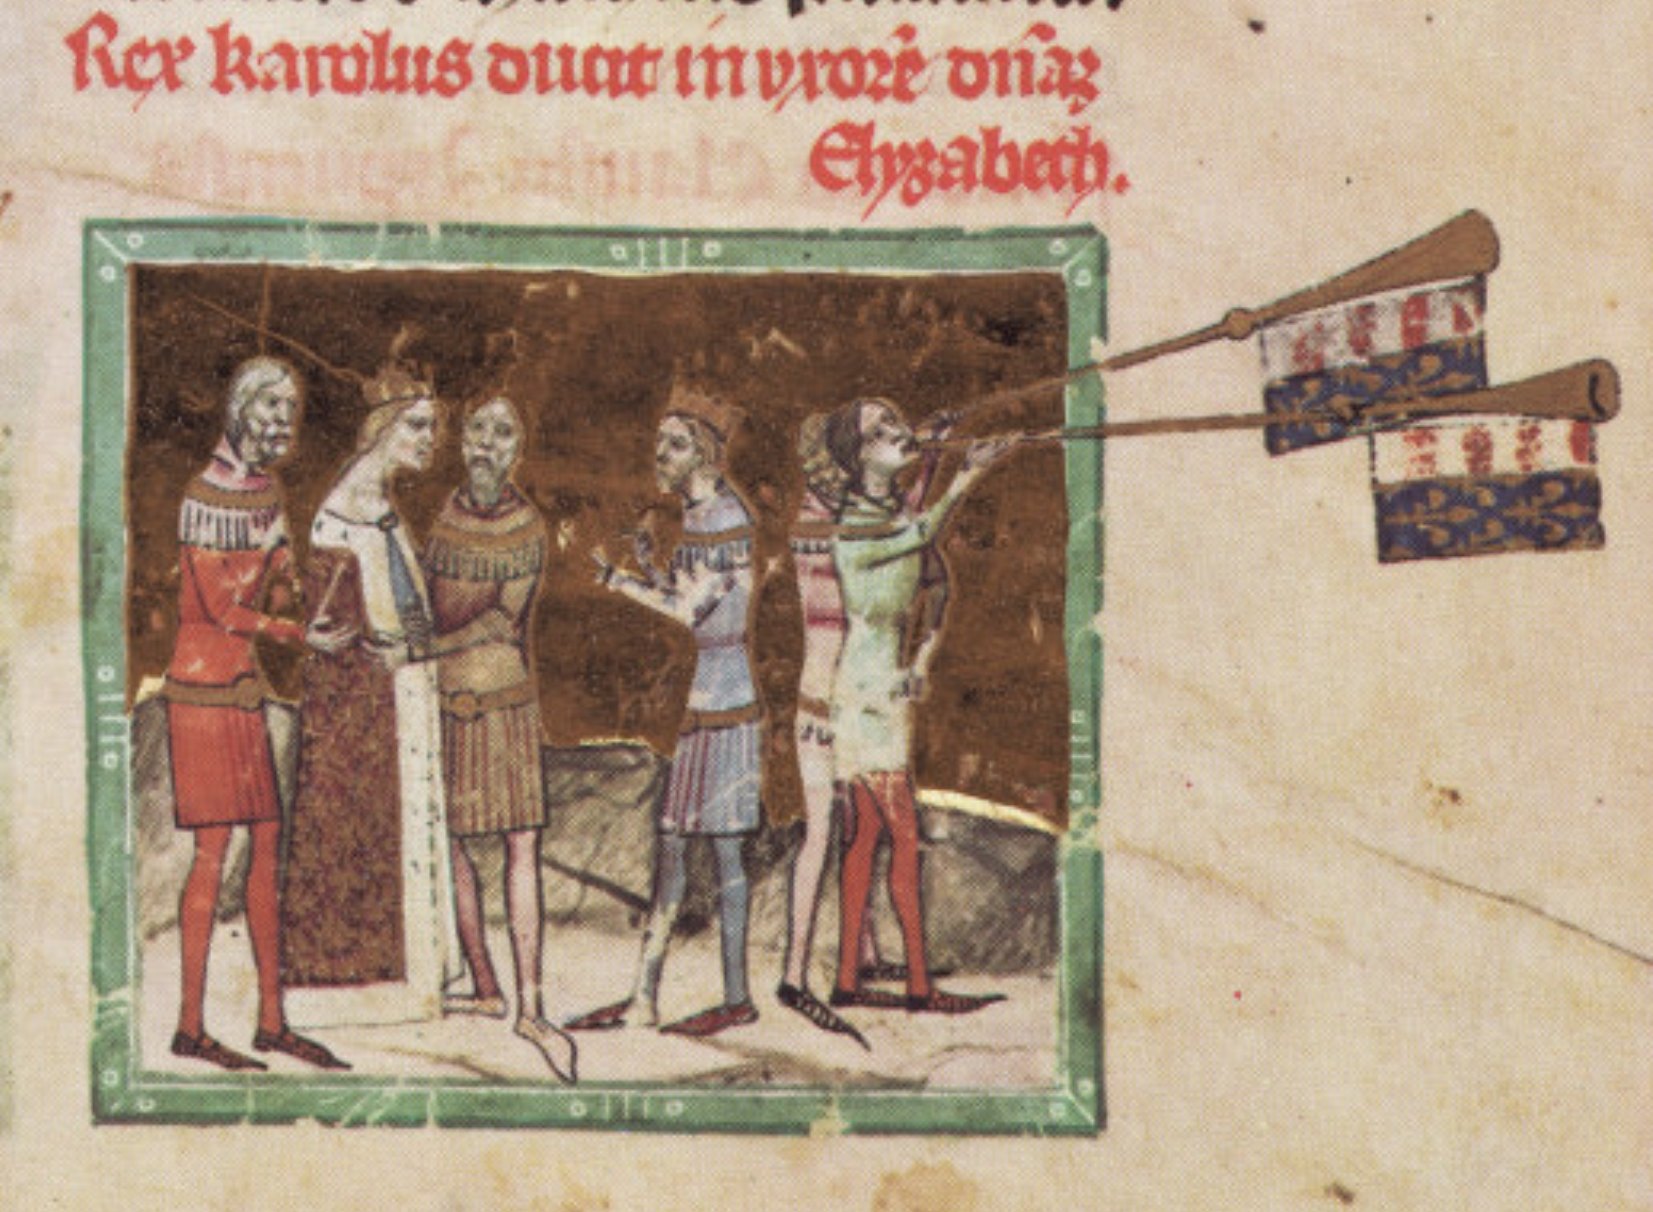 Rex karolus ducit in vxorē dn̄aꝫ
Elyzabeth.